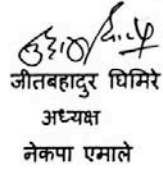 जीतबहादुर घिमिरे
अध्यक्ष
नेकपा एमाले